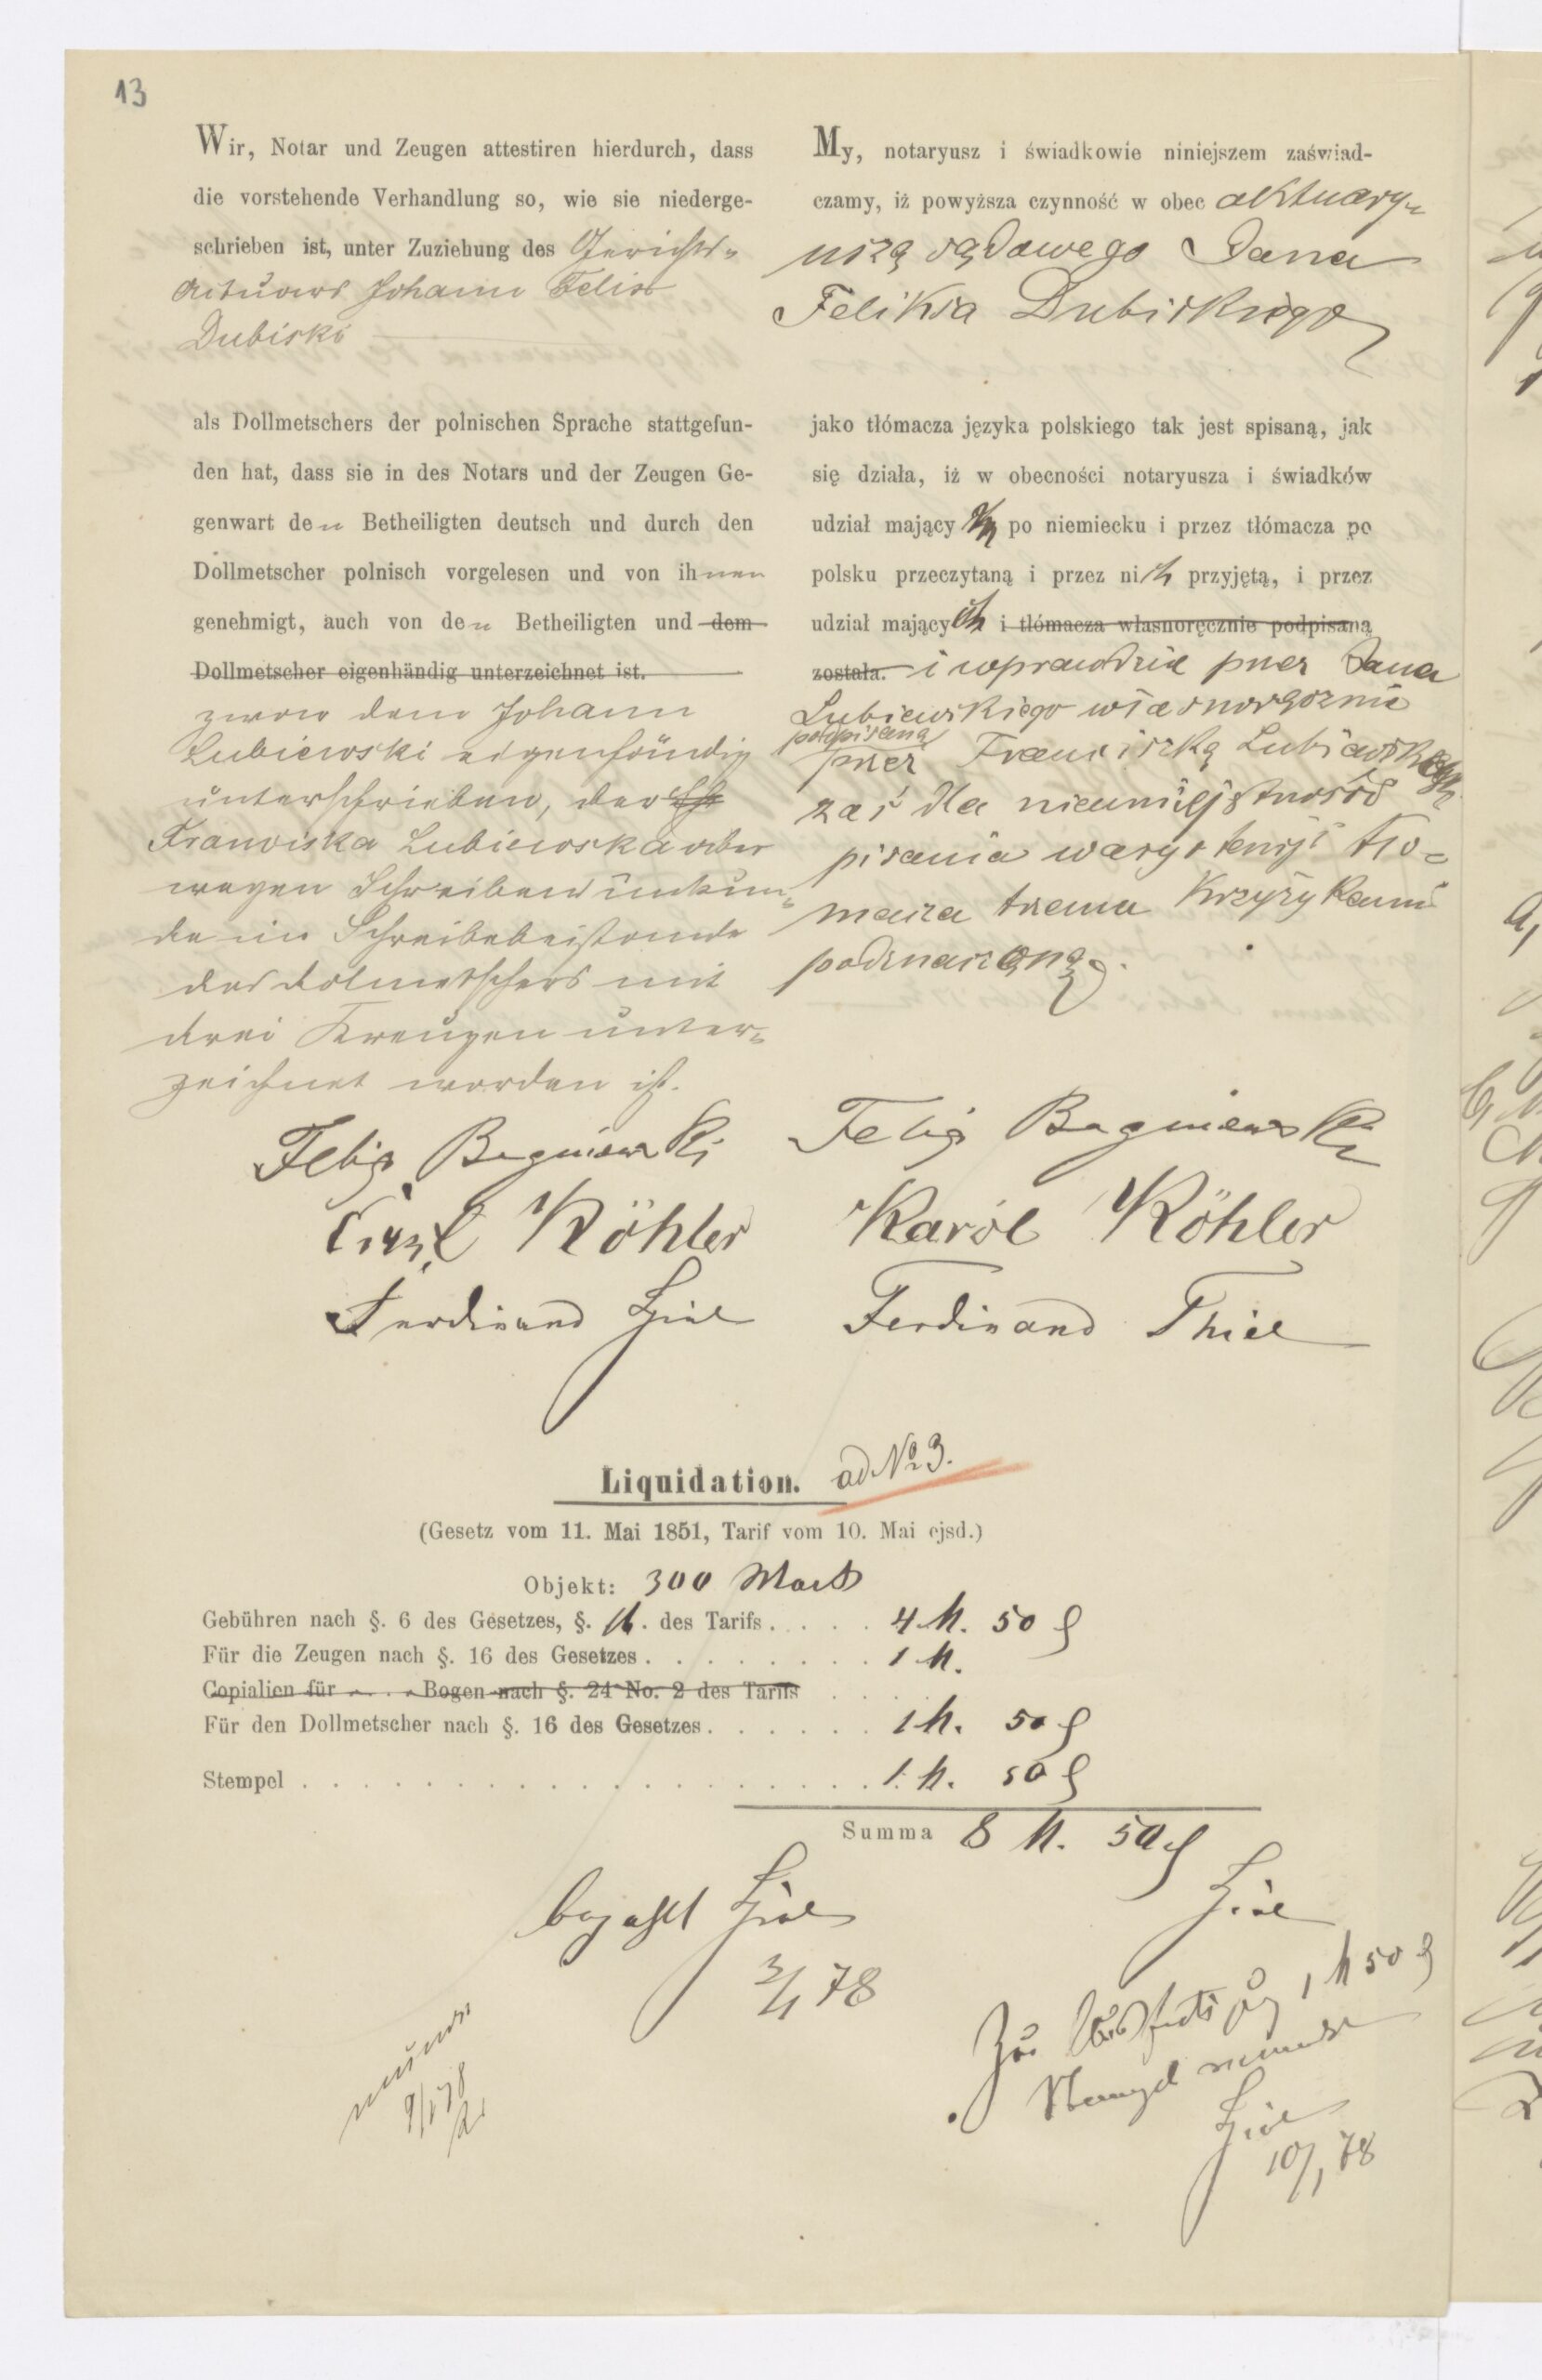 13
Wir, Notar und Zeugen attestiren hierdurch, dass
die vorstehende Verhandlung so, wie sie niederge-
schrieben ist, unter Zuziehung des Gerichts-
Actuars Johann Felix
Dubiski
als Dollmetschers der polnischen Sprache stattgefun-
den hat, dass sie in des Notars und der Zeugen Ge-
genwart den Betheiligten deutsch und durch den
Dollmetscher polnisch vorgelesen und von ihnen
genehmigt, auch von den Betheiligten und dem
Dollmetscher eigenhändig unterzeichnet ist.
zwar dem Johann
Lubiewski eigenhändig
unterschrieben, der
Franciska Lubiewska aber
wegen Schreibensunkun-
de im Schreibebeistande
des Dolmetschers mit
drei Kreuzen unter-
zeichnet worden ist.
My, notaryusz i świadkowie niniejszem zaświad-
czamy, iż powyższa czynność w obec aktuary-
usza sądowego Jana
Feliksa Dubiskiego
jako tłómacza języka polskiego tak jest spisaną, jak
się działa, iż w obecności notaryusza i świadków
udział mający po niemiecku i przez tłómacza po
polsku przeczytaną i przez nich przyjętą, i przez
udział mających i tłómacza własnoręcznie podpisaną
została. i wprawdzie przez Jana
Lubiewskiego własnoręcznie
podpisaną
przez Franciszkę Lubiewską
zaś dla nieumiejętności
pisania w asystencyi tło-
macza trzema krzyżykami
podznaczoną.
Felix Baginewski Felix Baginewski
Carl Köhler Karól Köhler
Ferdinand Thiel Ferdinand Thiel
Liquidation. ad No 3.
(Gesetz vom 11. Mai 1851, Tarif vom 10. Mai ejsd.)
Objekt: 300 Mark
Gebühren nach §. 6 des Gesetzes, §. des Tarifs. . . . . 4 M. 50
Für die Zeugen nach §. 16 des Gesetzes. . . . . . . . . 1 M.
Copialien für . . . Bogen nach §. 24 No. 2 des Tarifs . . .
Für den Dollmetscher nach §. 16 des Gesetzes. . . . . . 1 M. 50
Stempel . . . . . . . . . . . . . . . . . . . 1 M. 50
Summa 8 M. 50
Thiel
bezahlt Thiel
3/1 78
Zur Ausfertigung 1 M 50
Stempel
Thiel
10/1 78